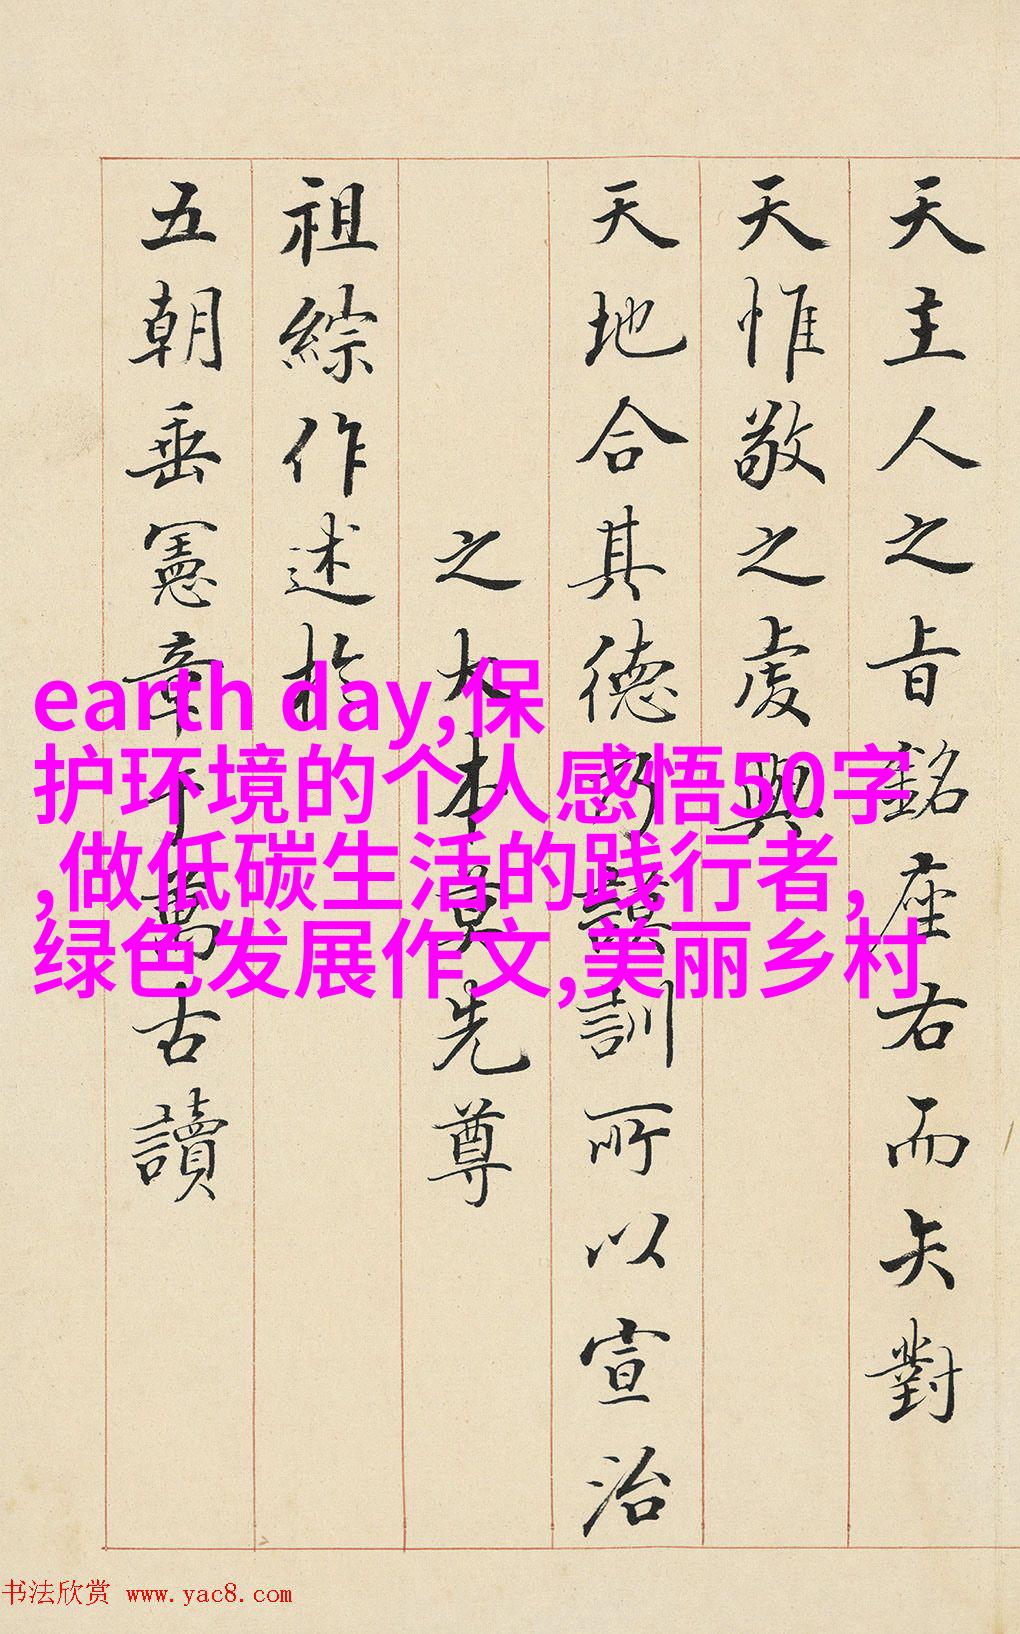 天主人之旨銘座右而矢對
天惟敬之處與
天地合其德謨訓所以宣治
之大本莫先尊
祖綜作述於
五朝垂憲章于萬古讀
earth day,保
护环境的个人感悟50字
,做低碳生活的践行者,
绿色发展作文,美丽乡村
书法欣赏 www.yac8.com